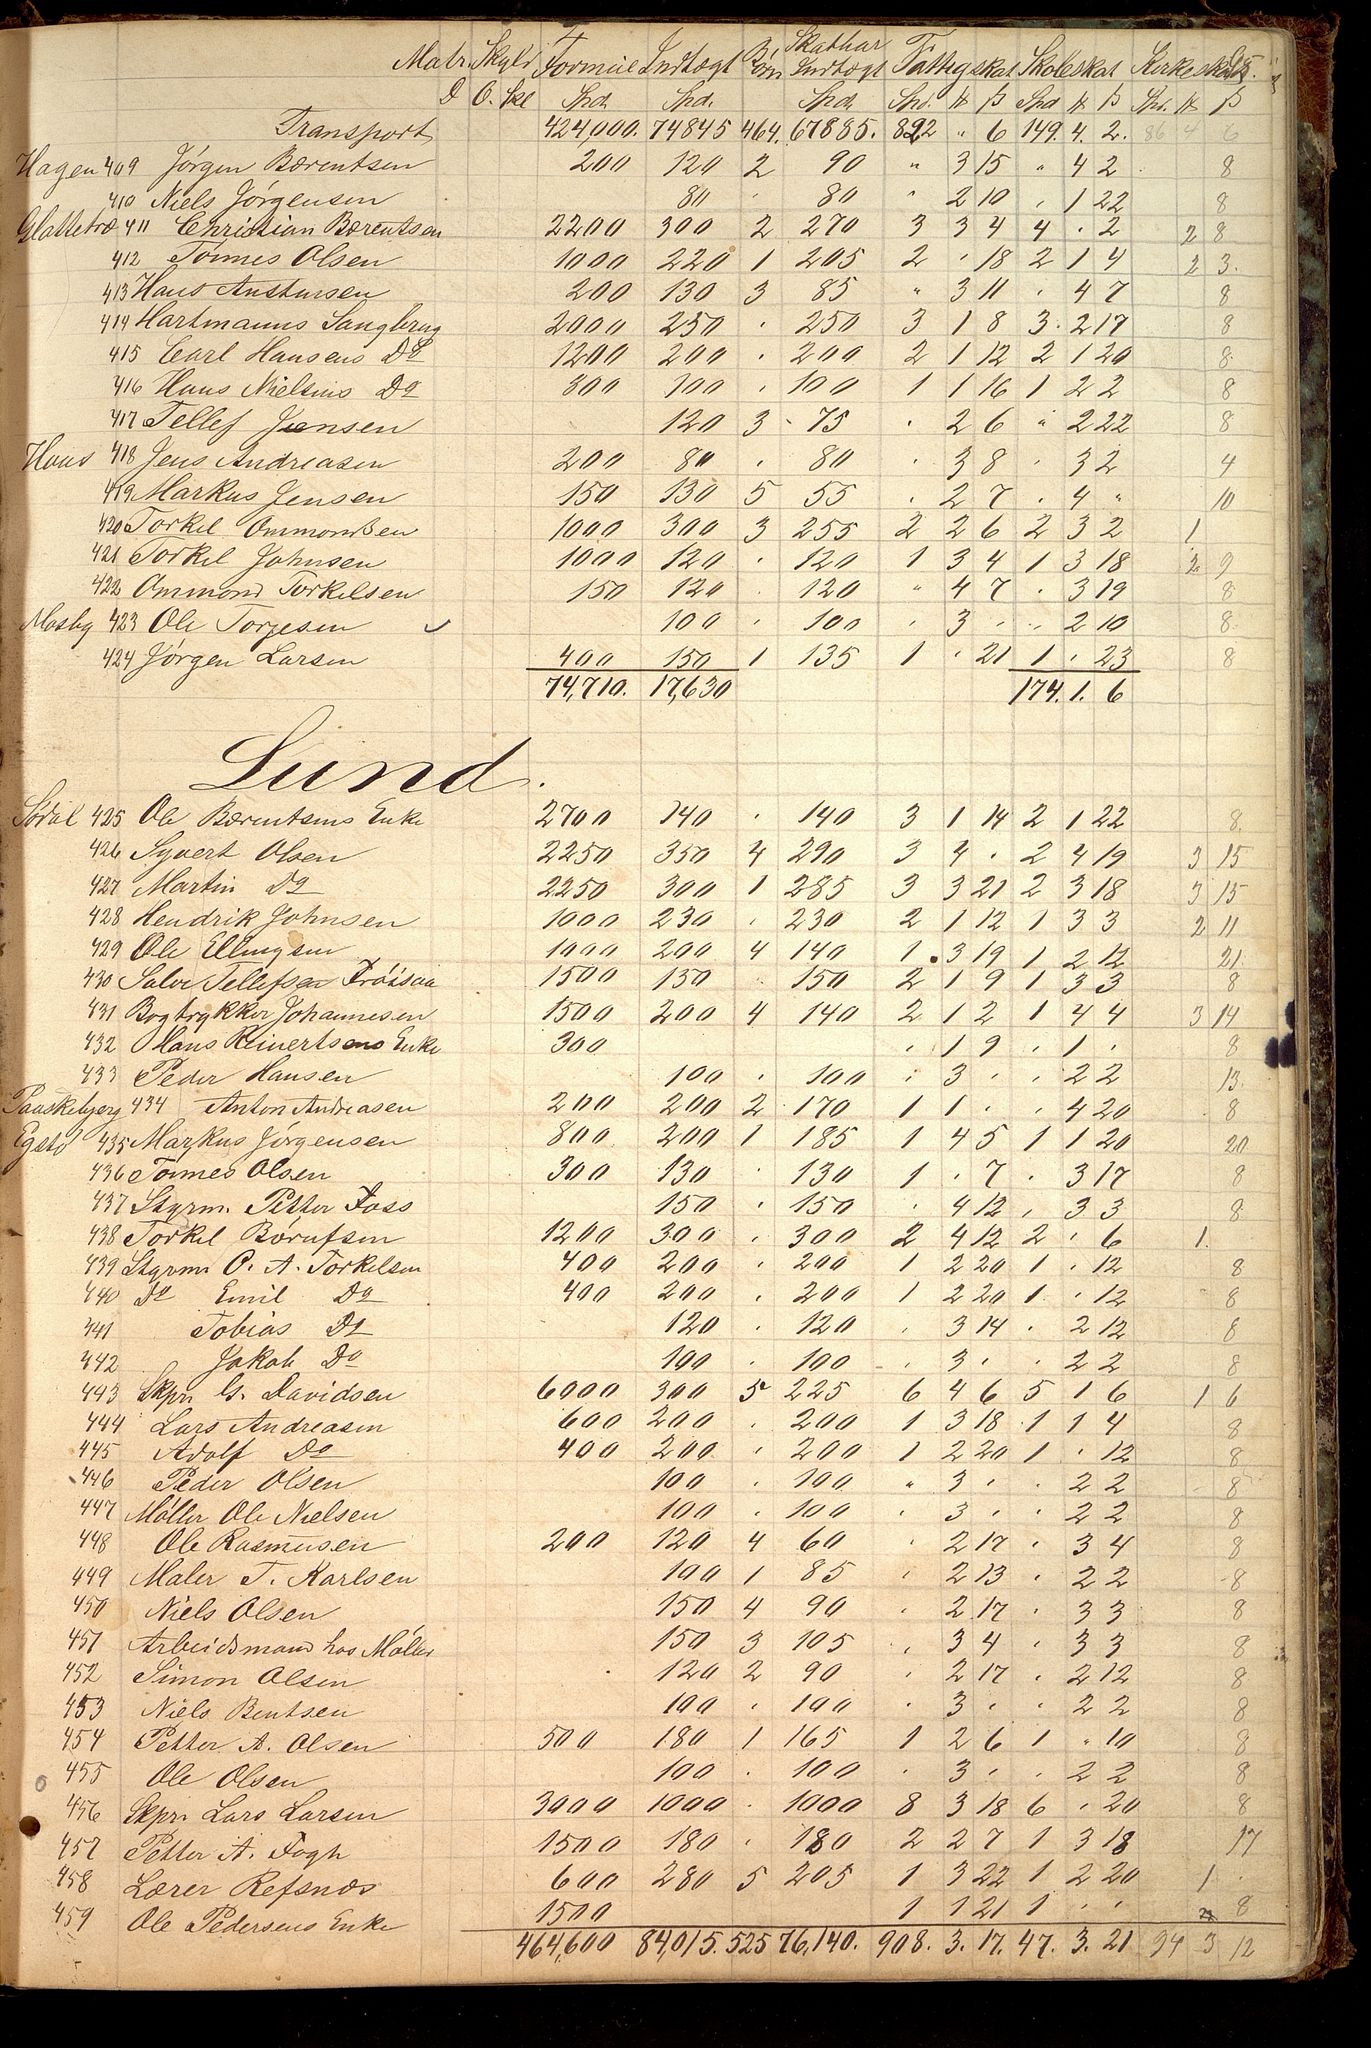 Matr. Skyld Formue Indtægt Børn Skatbar Indtægt Fattigskat Skoleskat Kirkeskat
D O. Skl Spd. Spd. Spd. Spd. ß Spd ß Spd. ß
Transport 424,000. 74845 464. 67885. 892 " 6 149. 4. 2. 86 4 6
Hagen 409 Jørgen Bærentsen 200 120 2 90 " 3 15 " 4 2 8
410 Niels Jørgensen 80 . 80 " 2 10 . 1 22 8
Glattetræ 411 Christian Bærentsen 2200 300 2 270 3 3 4 4 . 2 2 8
412 Tönnes Olsen 1000 220 1 205 2 . 18 2 1 4 2 3.
413 Hans Anstensen 200 130 3 85 " 3 11 . 4 7 8
414 Hartmanns Sangbrug 2000 250 . 250 3 1 8 3. 2 17 8
415 Carl Hansens Do 1200 200 . 200 2 1 12 2 1 20 8
416 Hans Nielsens Do 300 100 . 100 1 1 16 1 2 2 8
417 Tellef Jensen 120 3 75 . 2 6 " 2 22 8
Haus 418 Jens Andreasen 200 80 . 80 . 3 8 . 3 2 4
419 Markus Jensen 150 130 5 55 . 2 7 . 4 " 10
420 Torkel Ommondsen 1000 300 3 255 2 2 6 2 3 2 1
421 Torkel Johnsen 1000 120 . 120 1 3 4 1 3 18 2 9
422 Ommond Torkelsen 150 120 . 120 " 4 7 . 3 19 8
Mosby 423 Ole Torjesen 100 . 100 . 3 . . 2 10 8
424 Jørgen Larsen 400 150 1 135 1 . 21 1 . 23 8
74,710. 17,630 174. 1. 6
Lund.
Sødal 425 Ole Bærentsens Enke 2700 140 . 140 3 1 14 2 1 22 8
426 Syvert Olsen 2250 350 4 290 3 4 . 2 4 19 3 15
427 Martin Do 2250 300 1 285 3 3 21 2 3 18 3 15
428 Hendrik Johnsen 1000 230 . 230 2 1 12 1 3 3 2 11
429 Ole Ellingsen 1000 200 4 140 1. 3 19 1 2 12 21
430 Salve Tellefsen Fröisaa 1500 150 . 150 2 1 9 1 3 3 8
431 Bogtrykker Johannesen 1500 200 4 140 2 1 2 1 4 4 3 14
432 Hans Reinertsens Enke 300 . 1 9 . 1 . 8
433 Peder Hansen 100 . 100 . 3 . . 2 2 13
Paaskebjerg 434 Anton Andreasen 200 200 2 170 1 1 . . 4 20 8
Egstø 435 Markus Jørgensen 800 200 1 185 1 4 5 1 1 20 20
436 Tönnes Olsen 300 130 . 130 1 . 7 . 3 17 8
437 Styrm. Petter Foss 150 . 150 . 4 12 . 3 3 8
438 Torkel Børufsen 1200 300 . 300 2 4 12 2 . 6 1.
439 Styrm O. A. Torkelsen 400 200 . 200 1 2 20 1 . 12 8
440 Do Emil Do 400 200 . 200 1 2 20 1 . 12 8
441 Tobias Do 120 . 120 . 3 14 . 2 12 8
442 Jakob Do 100 . 100 . 3 . . 2 2 8
443 Skpr G. Davidsen 6000 300 5 225 6 4 6 5 1 6 1 6
444 Lars Andreasen 600 200 . 200 1 3 18 1 1 4 8
445 Adolf Do 400 200 . 200 1 2 20 1 . 12 8
446 Peder Olsen 100 . 100 " 3 . . 2 2 8
447 Möller Ole Nielsen 100 . 100 . 3 . . 2 2 8
448 Ole Rasmusen 200 120 4 60 . 2 17 . 3 4 8
449 Maler T. Karlsen 100 1 85 . 2 13 . 2 2 8
450 Niels Olsen 150 4 90 . 2 17 . 3 3 8
451 Arbeidsmand hos Möller 150 3 105 . 3 4 . 3 3 8
452 Simon Olsen 120 2 90 . 2 17 . 2 12 8
453 Niels Bentsen 100 . 100 . 3 . . 2 2 8
454 Petter A. Olsen 500 180 1 165 1 2 6 1 " 10 8
455 Ole Olsen 100 . 100 . 3 . . 2 2 8
456 Skpr Lars Larsen 3000 1000 . 1000 8 3 18 6 . 20 8
457 Petter A. Fogh 1500 180 . 180 2 2 7 1 3 18 17
458 Lærer Refsnæs 600 280 5 205 1 3 22 1 2 20 1 .
459 Ole Pedersens Enke 1500 1 1 21 1 . . 8
464,600 84,015. 525 76,140. 908. 3. 17. 47. 3. 21 94 3 12